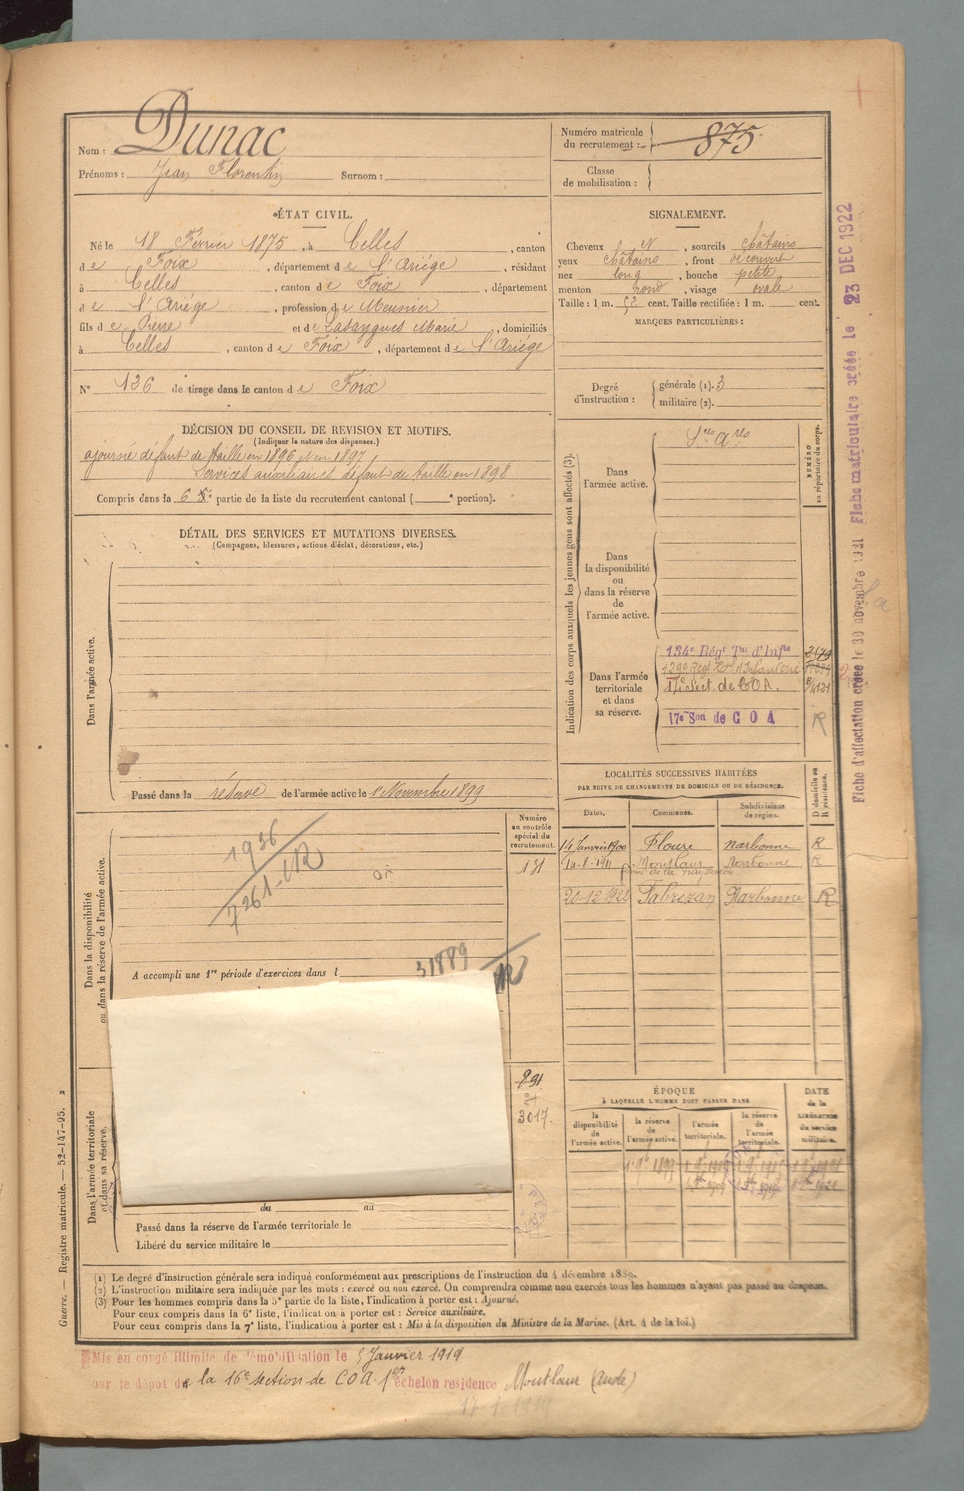 Nom : Dunac
Prénoms : Jean Florentin Surnom :
Numéro matricule du recrutement : 875
Classe de mobilisation :
ÉTAT CIVIL.
Né le 18 Fevrier 1875, à Celles, canton
de Foix, département de l'Ariége, résidant
à Celles, canton de Foix, département
de l'Ariége, profession de Meunier
fils de Pierre et de Lassygues Marie, domiciliés
à Celles, canton de Foix, département de l'Ariége
N° 136 de tirage dans le canton de Foix
SIGNALEMENT.
Cheveux et, sourcils châtains
yeux châtains, front découvert
nez long, bouche petite
menton rond, visage ovale
Taille : 1 m. 52 cent. Taille rectifiée : 1 m. cent.
MARQUES PARTICULIÈRES :
Degré d'instruction :
générale (1). 3
militaire (2).
DÉCISION DU CONSEIL DE REVISION ET MOTIFS.
(Indiquer la nature des dispenses.)
ajourné défaut de taille en 1896 et en 1897
Services auxiliaires défaut de taille en 1898
Compris dans la 6e partie de la liste du recrutement cantonal ( e portion).
DÉTAIL DES SERVICES ET MUTATIONS DIVERSES.
(Campagnes, blessures, actions d'éclat, décorations, etc.)
Dans l'armée active.
Passé dans la réserve de l'armée active le 1er Novembre 1899
Indication des corps auxquels les jeunes gens sont affectés (3).
NUMÉRO au répertoire du corps.
Dans l'armée active.
Sces Ares
Dans la disponibilité ou dans la réserve de l'armée active.
Dans l'armée territoriale et dans sa réserve.
134e Régt Tal d'Infie
129e Régt Tal d'Infanterie
17e Sect. de COA.
17e Son de COA
R
LOCALITÉS SUCCESSIVES HABITÉES
PAR SUITE DE CHANGEMENTS DE DOMICILE OU DE RÉSIDENCE.
Dates. Communes. Subdivisions de région. D domicile ou R résidence.
14 Janvier 1900 Floure Narbonne R
Montlaur Narbonne R
20-12 1922 Fabrezan Narbonne R
Dans la disponibilité ou dans la réserve de l'armée active.
Numéro au contrôle spécial du recrutement.
131
1936
7261-UR
A accompli une 1re période d'exercices dans l
31889
UR
Dans l'armée territoriale et dans sa réserve.
891
3017.
du au
Passé dans la réserve de l'armée territoriale le
Libéré du service militaire le
ÉPOQUE
À LAQUELLE L'HOMME DOIT PASSER DANS
la disponibilité de l'armée active.
la réserve de l'armée active.
l'armée territoriale.
la réserve de l'armée territoriale.
DATE de la LIBÉRATION du service militaire.
(1) Le degré d'instruction générale sera indiqué conformément aux prescriptions de l'instruction du 4 décembre 1889.
(2) L'instruction militaire sera indiquée par les mots : exercé ou non exercé. On comprendra comme non exercés tous les hommes n'ayant pas passé au drapeau.
(3) Pour les hommes compris dans la 5e partie de la liste, l'indication à porter est : Ajourné.
Pour ceux compris dans la 6e liste, l'indication à porter est : Service auxiliaire.
Pour ceux compris dans la 7e liste, l'indication à porter est : Mis à la disposition du Ministre de la Marine. (Art. 4 de la loi.)
Mis en congé illimité de démobilisation le 5 Janvier 1919
par le dépôt de la 16e section de COA 1er échelon résidence Montlaur (Aude)
Guerre. — Registre matricule. — 52-147-95. 2
Fiche d'affectation créée le 30 novembre 1921 Fiche matriculaire créée le 23 DEC 1922